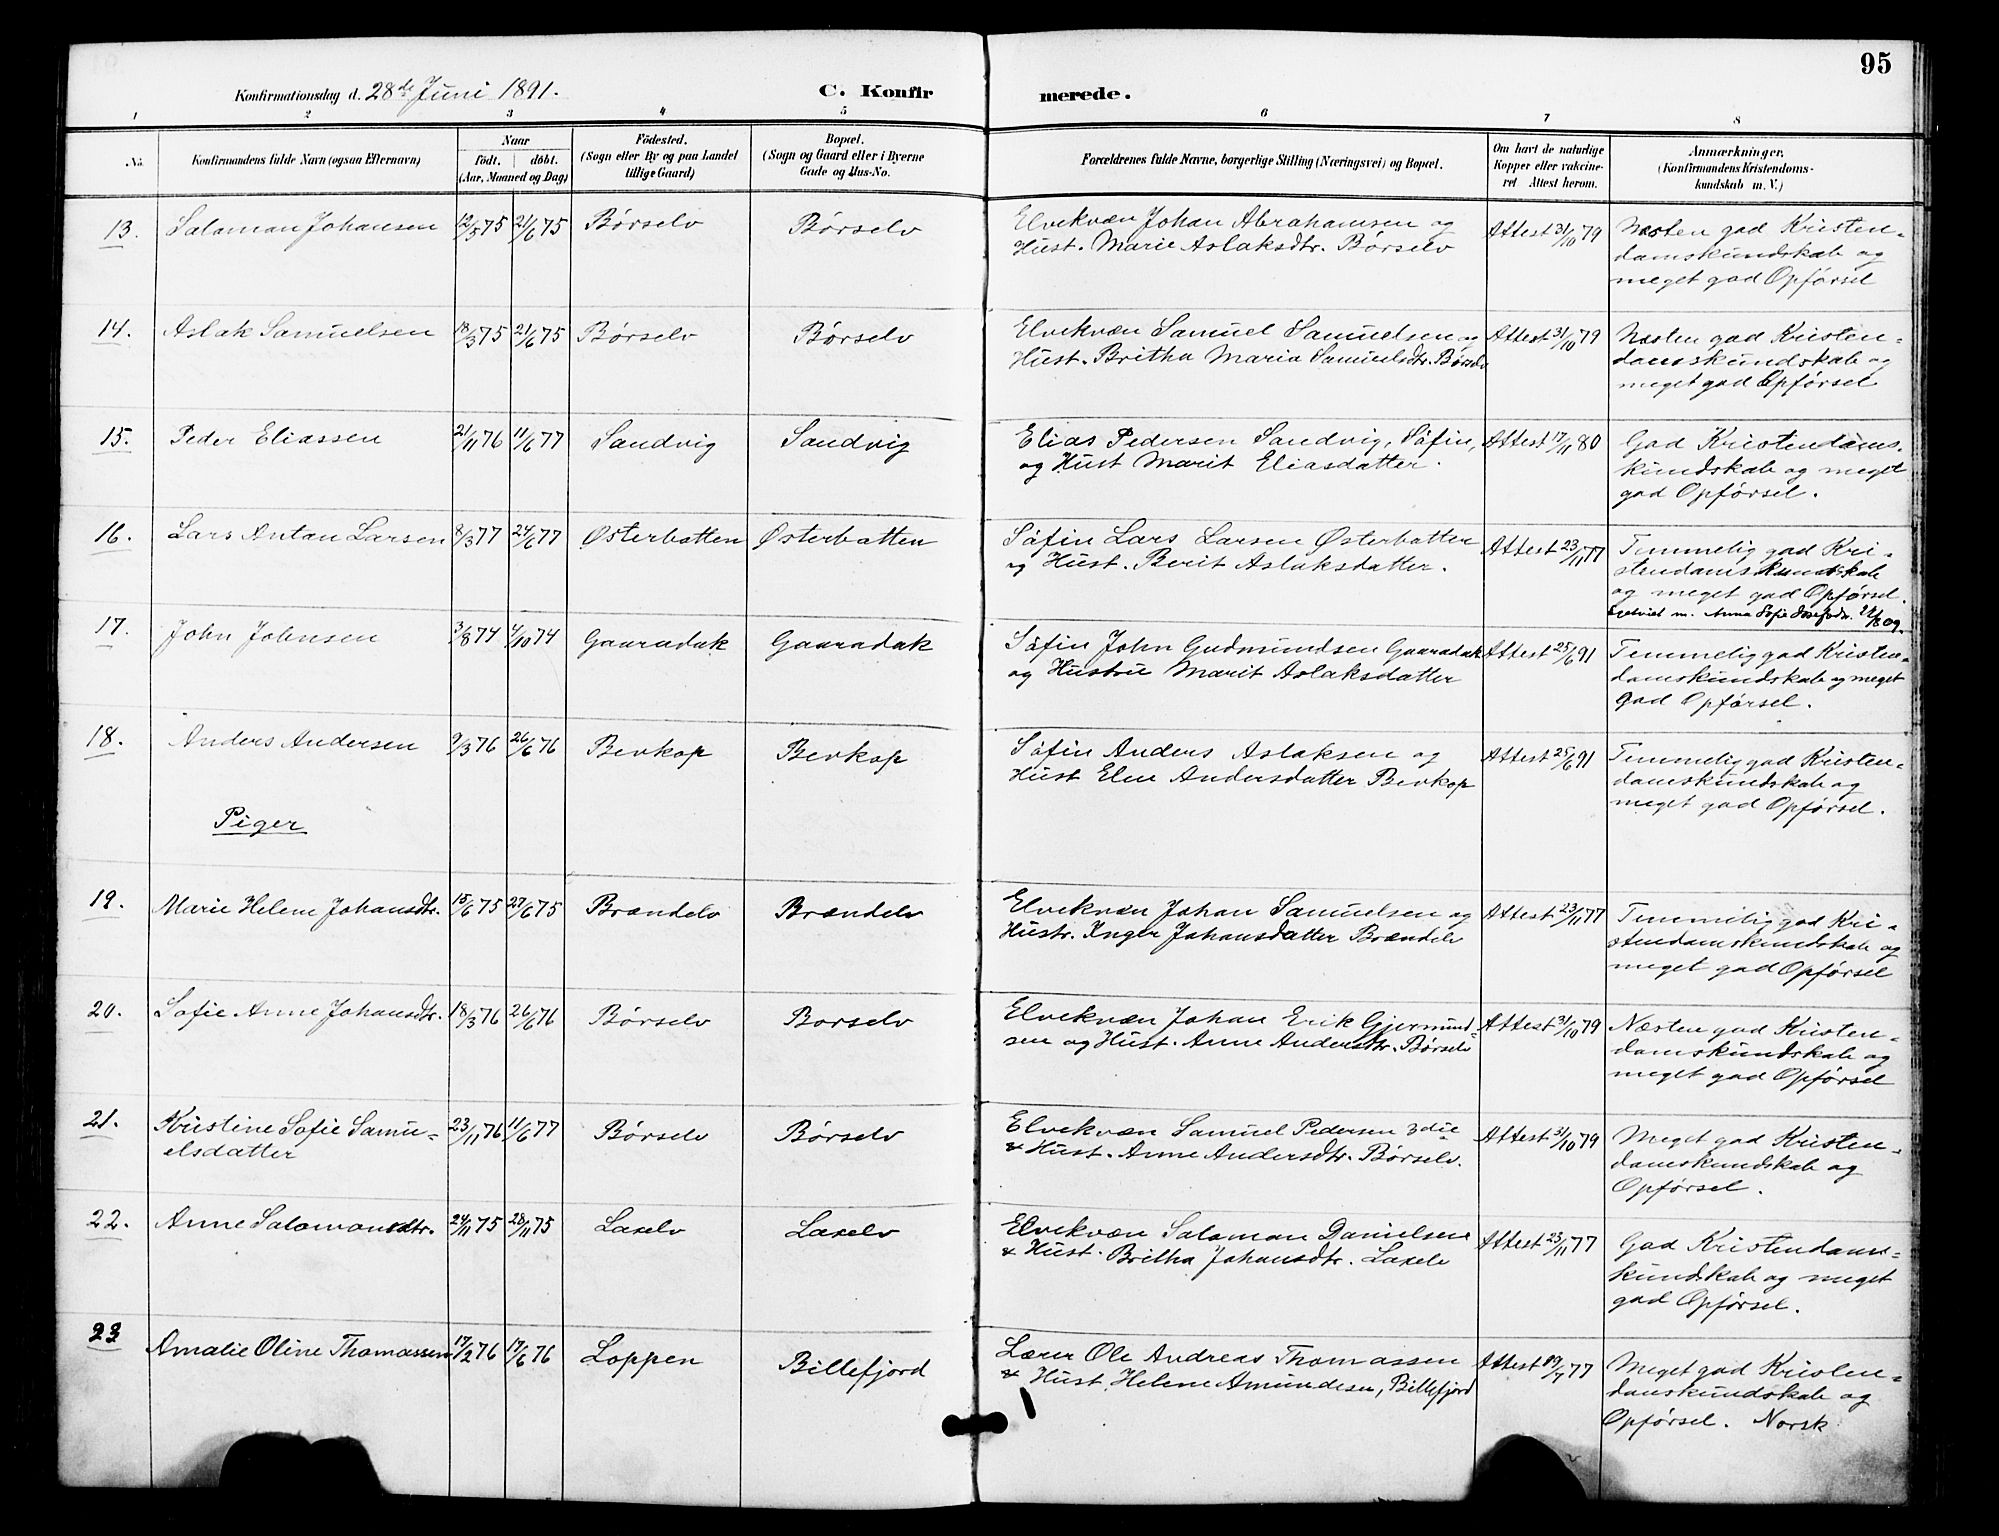 95
Konfirmationsdag d. 28de Juni 1891.
C. Konfirmerede.
1 2 3 4 5 6 7 8
No.
Konfirmandens fulde Navn (ogsaa Efternavn)
Naar
født. | døbt.
(Aar, Maaned og Dag)
Födested.
(Sogn eller By og paa Landet
tillige Gaard)
Bopæl.
(Sogn og Gaard eller i Byerne
Gade og Hus-No.
Forældrenes fulde Navne, borgerlige Stilling (Næringsvei) og Bopæl.
Om havt de naturlige
Kopper eller vakcine-
ret Attest herom.
Anmærkninger,
(Konfirmandens Kristendoms-
kundskab m. V.)
13. Salamon Johansen 12/5 75 21/6 75 Børselv Børselv
Elvekvæn Johan Abrahamsen og
Hust. Marie Aslaksdtr. Børselv
Attest 31/10 79
Næsten god Kristen-
domskundskab og
meget god Opførsel
14. Aslak Samuelsen 18/3 75 21/6 75 Børselv Børselv
Elvekvæn Samuel Samuelsen og
Hust. Britha Maria Samuelsdtr. Børselv
Attest 31/10 79
Næsten god Kristen-
domskundskab og
meget god Opførsel
15. Peder Eliassen 21/11 76 11/6 77 Sandvig Sandvig
Elias Pedersen Sandvig, Søfin,
og Hust Marit Eliasdatter.
Attest 17/11 80
God Kristendoms-
kundskab og meget
god Opførsel.
16. Lars Anton Larsen 8/3 77 24/6 77 Østerbotten Østerbotten
Søfin Lars Larsen Østerbotten
og Hust. Berit Aslaksdatter.
Attest 23/11 77
Temmelig god Kri-
stendomskundskab
og meget god Opførsel.
Egteviet m. Anna Sofie Josefsdr. 22/8 09.
17. John Johnsen 3/8 74 4/10 74 Gaaradak Gaaradak
Søfin John Gudmundsen Gaaradak
og Hustru Marit Aslaksdatter
Attest 25/6 91
Temmelig god Kristen-
domskundskab og meget
god Opførsel.
18. Anders Andersen 9/3 76 26/6 76 Bevkop Bevkop
Søfin Anders Aslaksen og
Hust Elen Andersdatter Bevkop
Attest 25/6 91
Temmelig god Kristen-
domskundskab og
meget god Opførsel.
Piger
19. Marie Helene Johansdtr. 15/6 75 27/6 75 Brændelv Brændelv
Elvekvæn Johan Samuelsen og
Hustr. Inger Johansdatter Brændelv
Attest 23/11 77
Temmelig god Kri-
stendomskundskab og
meget god Opførsel
20. Sofie Anne Johansdtr. 18/3 76 26/6 76 Børselv Borselv
Elvekvæn Johan Erik Gjermund-
sen og Hust. Anne Andersdtr. Børselv
Attest 31/10 79
Næsten god Kristen-
domskundskab og
meget god Opførsel
21. Kristine Sofie Samu-
elsdatter 23/11 76 11/6 77 Børselv Børselv
Elvekvæn Samuel Pedersen 3die
& Hust. Anne Andersdtr. Børselv.
Attest 31/10 79
Meget god Kristen-
domskundskab og
Opførsel.
22. Anne Salomonsdtr. 24/11 75 28/11 75 Laxelv Laxelv
Elvekvæn Salamon Danielsen
& Hust. Britha Johansdtr. Laxelv
Attest 23/11 77
God Kristendoms-
kundskab og meget
god Opførsel.
23 Amalie Oline Thomassen 17/2 76 17/6 76 Loppen Billefjord
Lærer Ole Andreas Thomassen
& Hust. Helene Amundsen, Billefjord
Attest 19/7 77
Meget god Kristen-
domskundskab og
Opførsel. Norsk